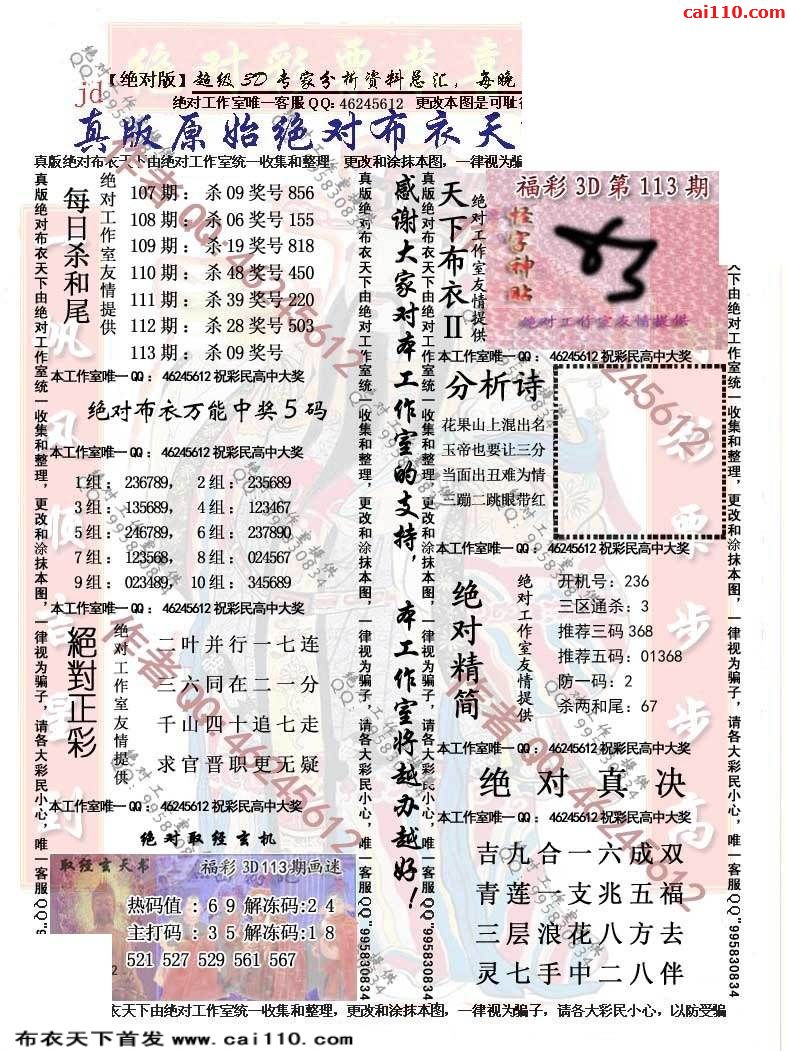 cai110.com
【绝对版】超级3D专家分析资料总汇，每晚
jd
绝对工作室唯一客服QQ:46245612 更改本图是可耻
真版原始绝对布衣天
真版绝对布衣天下由绝对工作室统一收集和整理，更改和涂抹本图，一律视为骗
每日杀和尾
绝对工作室友情提供
107期：杀09奖号856
108期：杀06奖号155
109期：杀19奖号818
110期：杀48奖号450
111期：杀39奖号220
112期：杀28奖号503
113期：杀09奖号
本工作室唯一QQ：46245612祝彩民高中大奖
绝对布衣万能中奖5码
本工作室唯一QQ：46245612祝彩民高中大奖
1组：236789，2组：235689
3组：135689，4组：123467
5组：246789，6组：237890
7组：123568，8组：024567
9组：023489，10组：345689
本工作室唯一QQ：46245612祝彩民高中大奖
絕對正彩
绝对工作室友情提供
二叶并行一七连
三六同在二一分
千山四十追七走
求官晋职更无疑
本工作室唯一QQ：46245612祝彩民高中大奖
绝对取经玄机
取经玄天书 福彩3D113期画迷
热码值：69解冻码:24
主打码：35解冻码:18
521 527 529 561 567
2
感谢大家对本工作室的支持，本工作室将越办越好！
真版绝对布衣天下由绝对工作室统一收集和整理，更改和涂抹本图，一律视为骗子，请各大彩民小心，唯一客服QQ"995830834
天下布衣II
绝对工作室友情提供
福彩3D第113期
怪字神贴
绝对工作室友情提供
本工作室唯一QQ：46245612祝彩民高中大奖
分析诗
花果山上混出名
玉帝也要让三分
当面出丑难为情
三蹦二跳眼带红
本工作室唯一QQ：46245612祝彩民高中大奖
绝对精简
绝对工作室友情提供
开机号：236
三区通杀：3
推荐三码368
推荐五码：01368
防一码：2
杀两和尾：67
本工作室唯一QQ：46245612祝彩民高中大奖
绝对真决
本工作室唯一QQ：46245612祝彩民高中大奖
吉九合一六成双
青莲一支兆五福
三层浪花八方去
灵七手中二八伴
天下由绝对工作室统一收集和整理，更改和涂抹本图，一律视为骗子，请各大彩民小心，唯一客服QQ"995830834
衣天下由绝对工作室统一收集和整理，更改和涂抹本图，一律视为骗子，请各大彩民小心，以防受骗
布衣天下首发 www.cai110.com
作者QQ:46245612